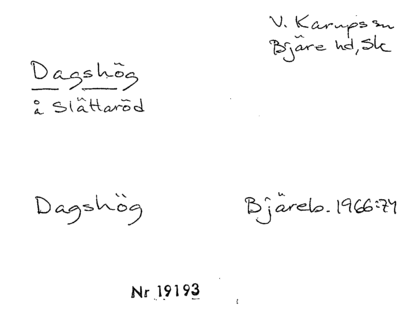 V. Karups sn
Bjäre hd, Sk
Dagshög
å Slättaröd
Dagshög
Bjäreb. 1966:74
Nr 19193